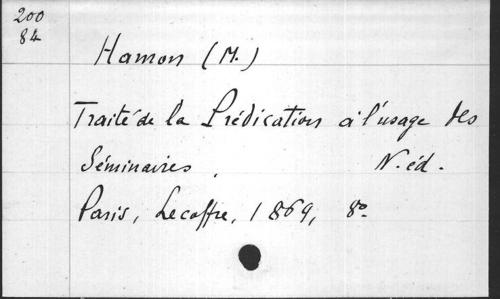 200
84
Hamon (M.)
Traité de la Prédication à l'usage des
Séminaires. N. éd.
Paris, Lecoffre, 1869, 8º.